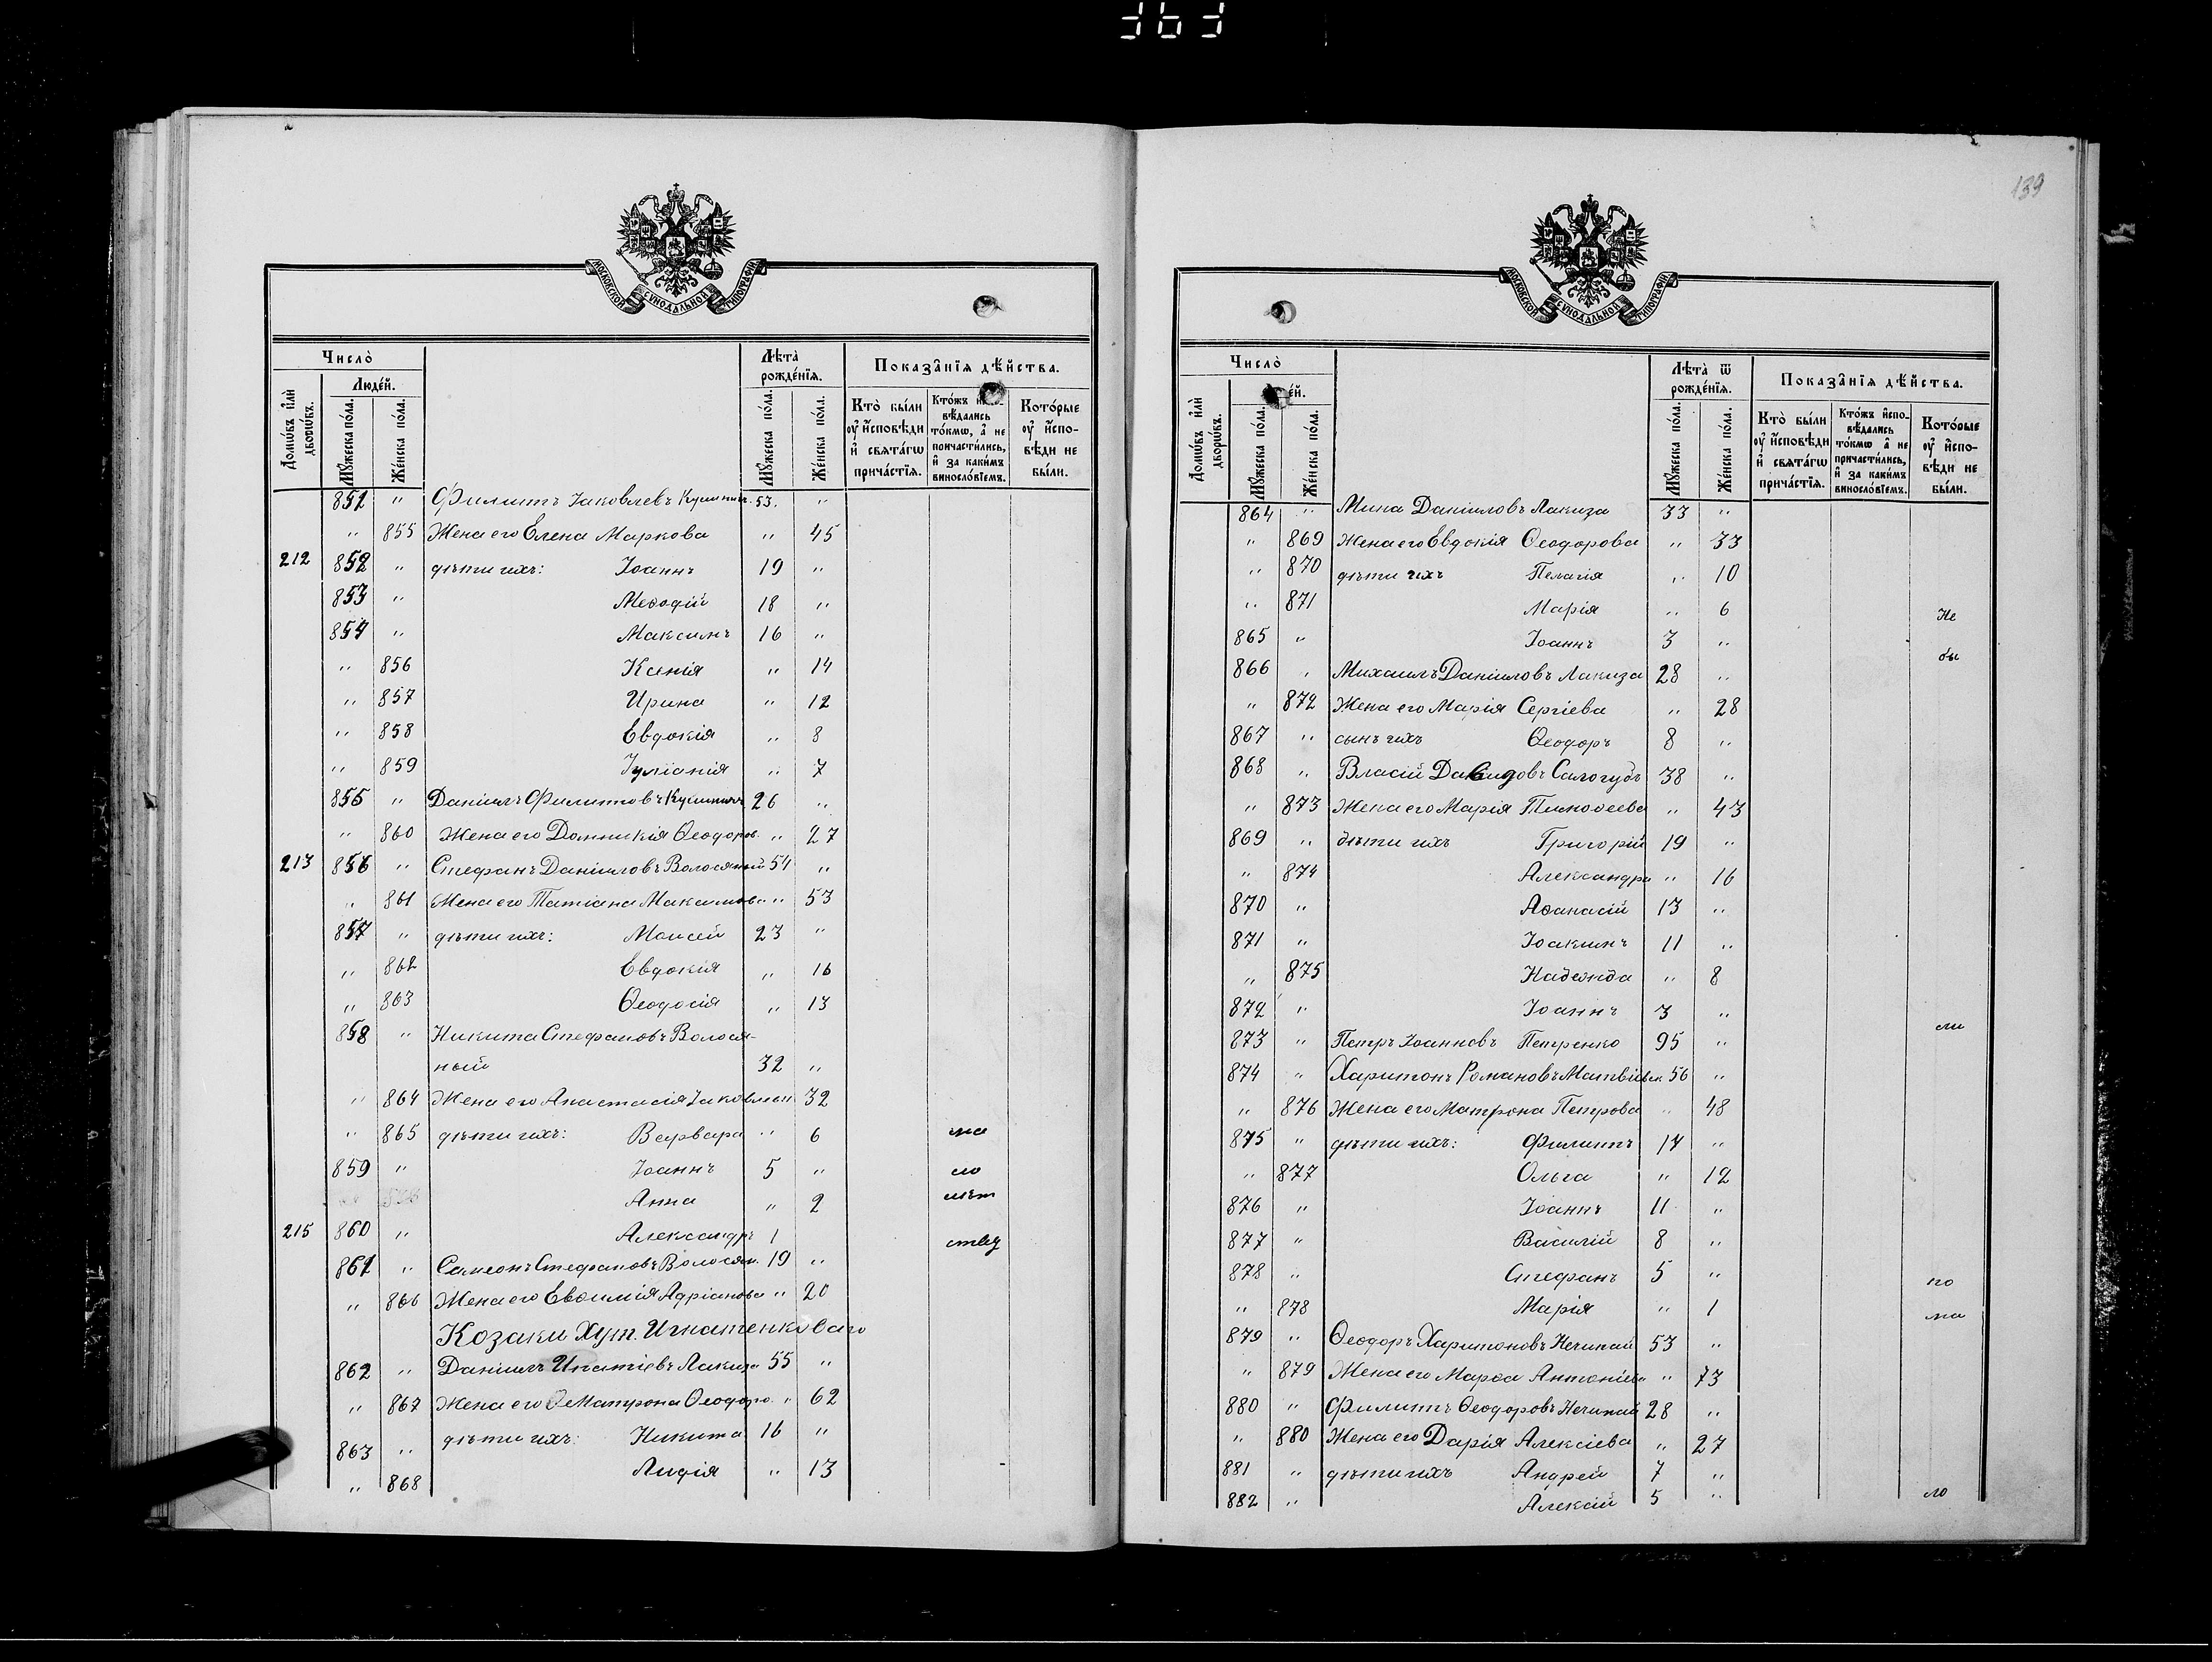 139
МОСКОВСКОЙ СУНОДАЛЬНОЙ ТИПОГРАФІИ
Число̀
Домѡ́въ и҆лѝ дворѡ́въ.
Люде́й.
Мꙋ́жеска по́ла.
Же́нска по́ла.
Лѣ́та рожде́нїѧ.
Мꙋ́жеска по́ла.
Же́нска по́ла.
Показа̑нїѧ дѣ́йства.
Кто̀ бы́ли оу҆ и҆́сповѣди и҆ свѧта́гѡ прича́стїѧ.
Кто́жъ вѣ́дались то́кмѡ, а҆ не причасти́лись, и҆ за каки́мъ винослові́емъ.
Кото́рые оу҆ и҆́сповѣди не бы́ли.
851 " Филиппъ Іаковлевъ 53. "
" 855 Жена его Елена Маркова " 45
212 852 " дѣти ихъ: Іоаннъ 19 "
853 " Меѳодій 18 "
854 " Максимъ 16 "
" 856 Ксенія " 14
" 857 Ирина " 12
" 858 Евдокія " 8
" 859 Іуліанія " 7
855 " Даніилъ Филипповъ 26 "
" 860 Жена его Домникія Ѳеодоров. " 27
213 856 " Стефанъ Даніиловъ Волосяный 54 "
" 861 Жена его Татіана Максимова " 53
857 " дѣти ихъ: Моисей 23 "
" 862 Евдокія " 16
" 863 Ѳеодосія " 13
858 " Никита Стефановъ Волося-
ный 32 "
" 864 Жена его Анастасія Іаковлеви 32
" 865 дѣти ихъ: Варвара " 6 ма
859 " Іоаннъ 5 " ло
Анна " 2 лѣт
215 860 " Александръ 1 ству
861 " Симеонъ Стефановъ Волосян. 19 "
" 866 Жена его Евѳимія Адріанова " 20
Козаки Хут. Игнатенковаго
862 " Даніилъ Ипатіевъ Лакиза 55 "
" 867 Жена его Матрона Ѳеодоро. " 62
863 " дѣти ихъ: Никита 16 "
" 868 Лидія " 13
МОСКОВСКОЙ СУНОДАЛЬНОЙ ТИПОГРАФІИ
Число̀
Домѡ́въ и҆лѝ дворѡ́въ.
е́й.
Мꙋ́жеска по́ла.
Же́нска по́ла.
Лѣ́та ѿ рожде́нїѧ.
Мꙋ́жеска по́ла.
Же́нска по́ла.
Показа̑нїѧ дѣ́йства.
Кто̀ бы́ли оу҆ и҆́сповѣди и҆ свѧта́гѡ прича́стїѧ.
Кто́жъ и҆сповѣ́дались то́кмѡ а҆ не причасти́лись, и҆ за каки́мъ винослові́емъ.
Кото́рые оу҆ и҆́сповѣди не бы́ли.
864 " Мина Даніиловъ Лакиза 33 "
" 869 Жена его Евдокія Ѳеодорова " 33
" 870 дѣти ихъ Пелагія " 10
" 871 Марія " 6 Не
865 " Іоаннъ 3 " бы
866 " Михаилъ Даніиловъ Лакиза 28 "
" 872 Жена его Марія Сергіева " 28
867 " сынъ ихъ Ѳеодоръ 8 "
868 " Власій Давидовъ Салогубъ 38 "
" 873 Жена его Марія Тимоѳеева " 43
869 " дѣти ихъ Григорій 19 "
" 874 Александра " 16
870 " Аѳанасій 13 "
871 " Іоакимъ 11 "
" 875 Надежда " 8
872 " Іоаннъ 3 " ли
873 " Петръ Іоанновъ Петренко 95 "
874 " Харитонъ Романовъ 56 "
" 876 Жена его Матрона Петрова " 48
875 " дѣти ихъ: Филиппъ 14 "
" 877 Ольга " 12
876 " Іоаннъ 11 "
877 " Василій 8 "
878 " Стефанъ 5 " по
" 878 Марія " 1 ма
879 " Ѳеодоръ Харитоновъ Нечипай 53 "
" 879 Жена его Марѳа Антоніева " 73
880 " Филиппъ Ѳеодоровъ Нечипай 28 "
" 880 Жена его Дарія Алексіева " 27
881 " дѣти ихъ Андрей 7 "
882 " Алексій 5 " ло